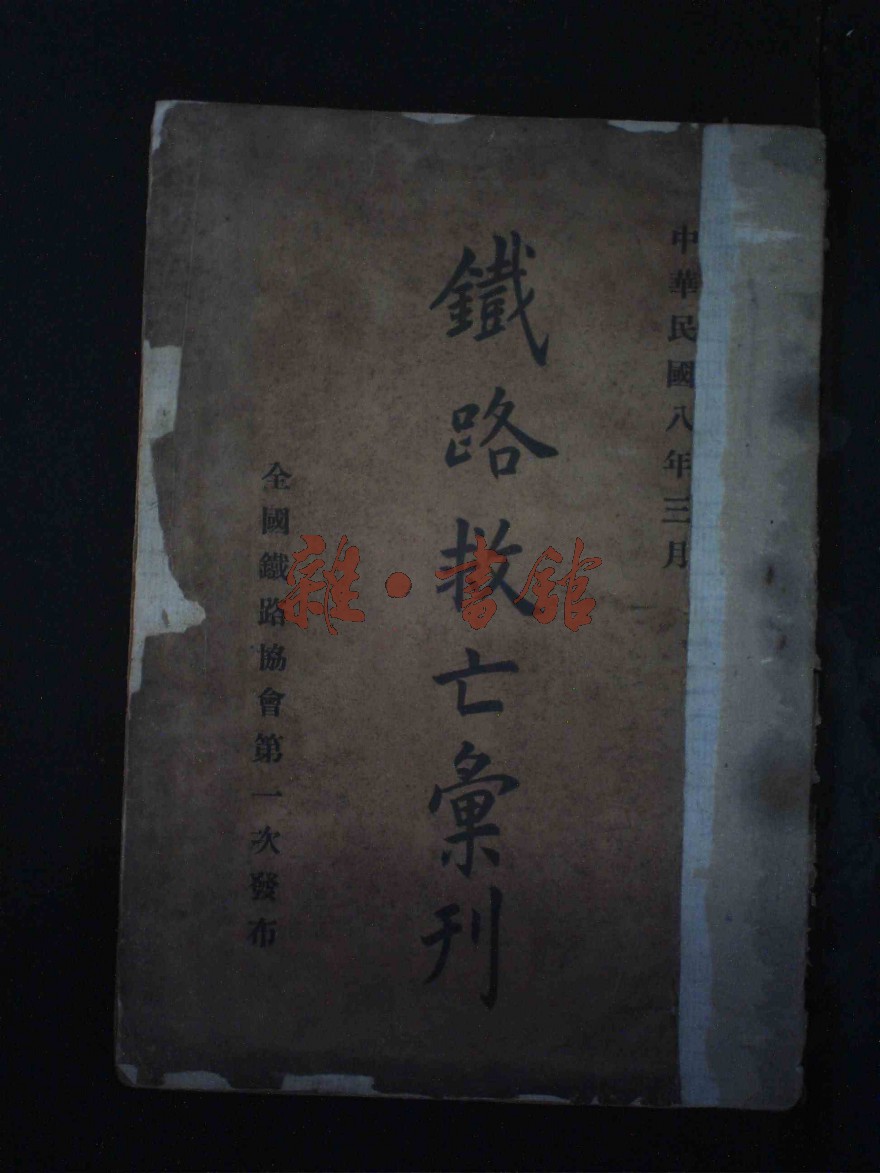 中華民國八年三月
鐵路救亡彙刊
全國鐵路協會第一次發布
雜·書館